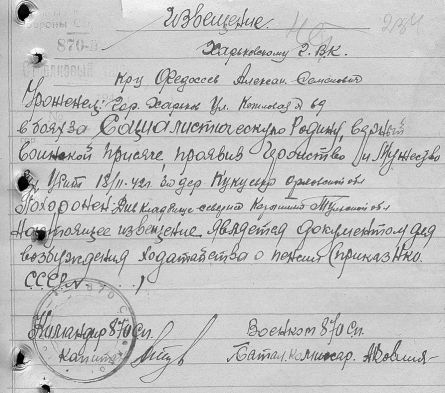 Извещение.
Харьковскому Г.В.К.
Кр-ц Федосеев Алексан. Семенович
Уроженец: Гор. Харьков ул. Котловая д 69
в боях за Социалистическую Родину верный
воинской присяге проявив геройство и мужество
Убит 18/II-42г в дер Орловской обл
Похоронен: кладбище северно Тульской обл
Настоящее извещение является документом для
возбуждения ходатайства о пенсии (приказ Нко.
СССР N )
Командир 870 Сп. Военком 870 Сп.
Капитан Батал. комиссар.